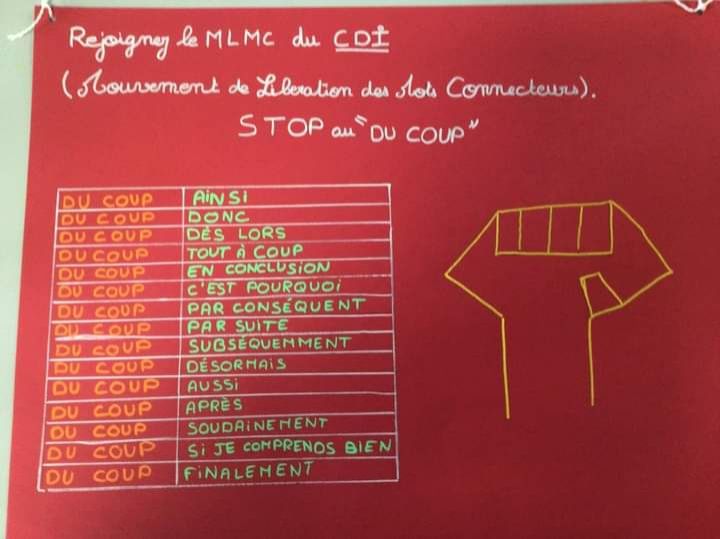 Rejoignez le MLMC du CDI
(Mouvement de Libération des Mots Connecteurs).
STOP au "DU COUP"
DU COUP AINSI
DU COUP DONC
DU COUP DÈS LORS
DU COUP TOUT À COUP
DU COUP EN CONCLUSION
DU COUP C'EST POURQUOI
DU COUP PAR CONSÉQUENT
DU COUP PAR SUITE
DU COUP SUBSÉQUEMMENT
DU COUP DÉSORMAIS
DU COUP AUSSI
DU COUP APRÈS
DU COUP SOUDAINEMENT
DU COUP SI JE COMPRENDS BIEN
DU COUP FINALEMENT